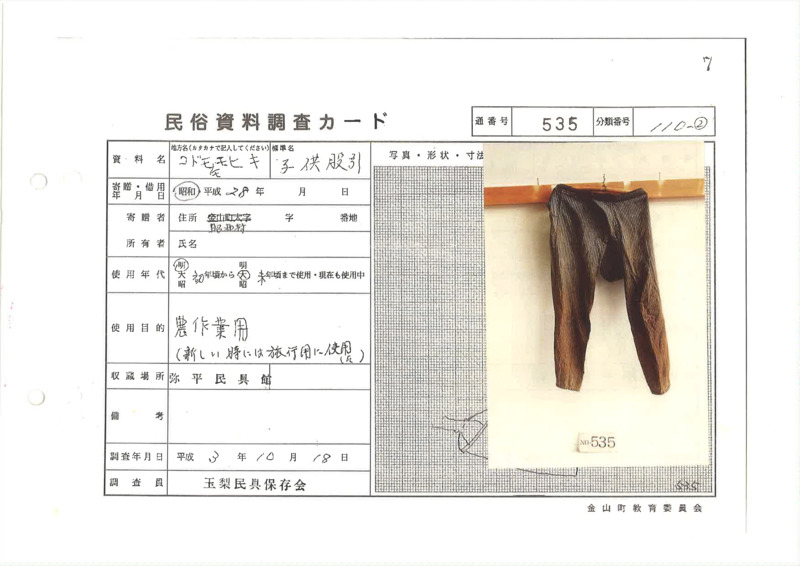 7
民俗資料調査カード
通番号 535 分類番号 110-②
資料名 地方名(カタカナで記入してください) コドモモヒキ 標準名 子供股引
写真・形状・寸法
寄贈・借用年月日 昭和・平成 28 年 月 日
寄贈者 住所 金山町大字 字 番地
所有者 氏名
使用年代 明大昭 初年頃から 明大昭 末年頃まで使用・現在も使用中
使用目的 農作業用
(新しい時には旅行用に使用した)
収蔵場所 弥平民具館
備考
調査年月日 平成 3 年 10 月 18 日
調査員 玉梨民具保存会
NO 535
535
金山町教育委員会